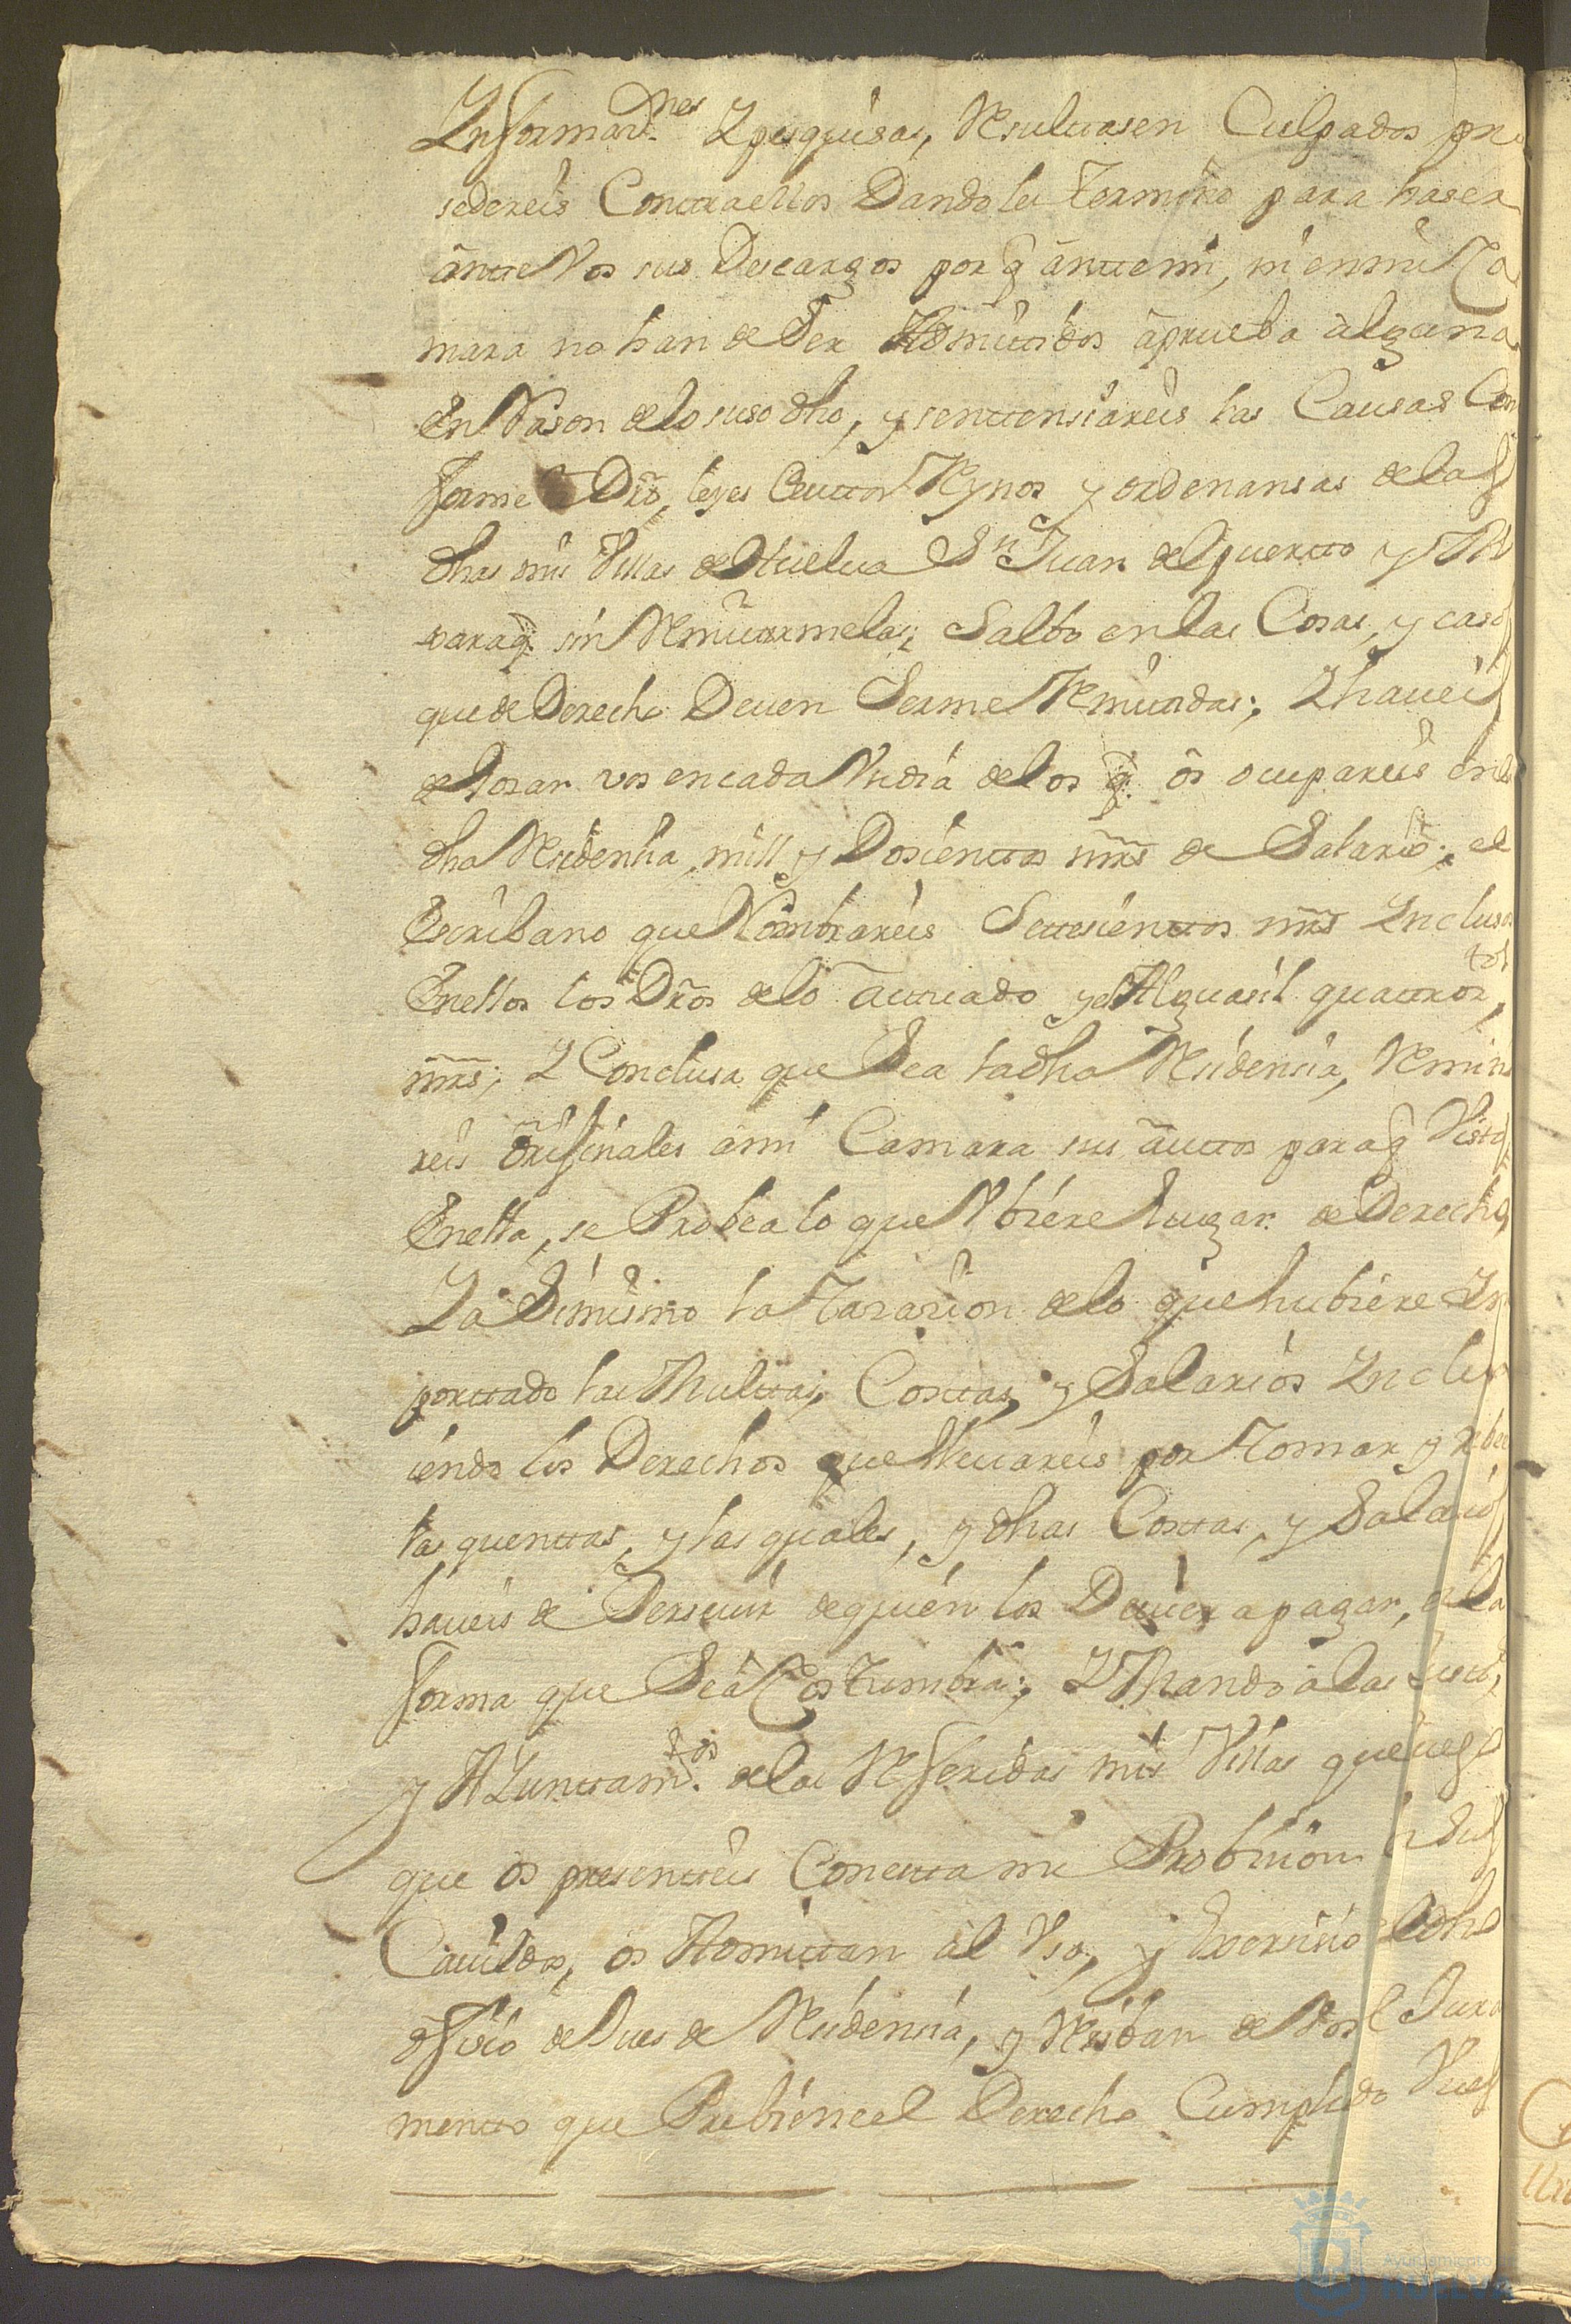 Informaz.nes Y pesquisas, Resultasen Culpados pro
sedereis Contraellos Dandoles termino para haser
ante Vos sus Descargos por q antemi, ni enmi Ca
mara no han de Ser Admitidos aprueba alguna
En Rason delo susodho, y sentensiareis las Causas Con
forme a Dro, leyes destos Reynos y ordenansas delas
dhas mis Villas de Huelua Sn Juan del puerto y
paraq. sin Remitirmelas; Salbo enlas Cosas, y casos
que de Derecho Deuen Serme Remitidas; Y haueis
de gosar vos encada Vn dia delos q. os ocupareis enla
dha Residensia, mill y Dosientos mrs de Salario; el
Escribano que Nombrareis Setesientos mrs Inclusos
Enellos los Dros delo actuado y el Alguasil quatros.tos
mrs; Y Conclusa que Sea la dha Residensia, Remiti
reis originales ami Camara sus autos paraq Vistos
Enella, se Probea lo que Vbiere lugar de Derecho
Y a Simismo la Tasasion delo que hubiere Im
portado las Multas, Costas, y Salarios Inclu
iendo los Derechos que lleuareis por Tomar y
las quentas, y las quales, y dhas Costas, y Salarios
haueis de Persiuir de quien los Deuiere pagar, en la
forma que Sea Costumbre; Y Mando alas
y Aiuntam.tos delas Referidas mis Villas que luego
que os presenteis Conesta mi Probision en Sus
Cauildos, os Admitan al Vso, y Exersisio del dho
ofisio de Jues de Residensia, y Resiban de Vos el Jura
mento que Prebieneel Derecho Cumplido
Ayuntamiento de
HUELVA